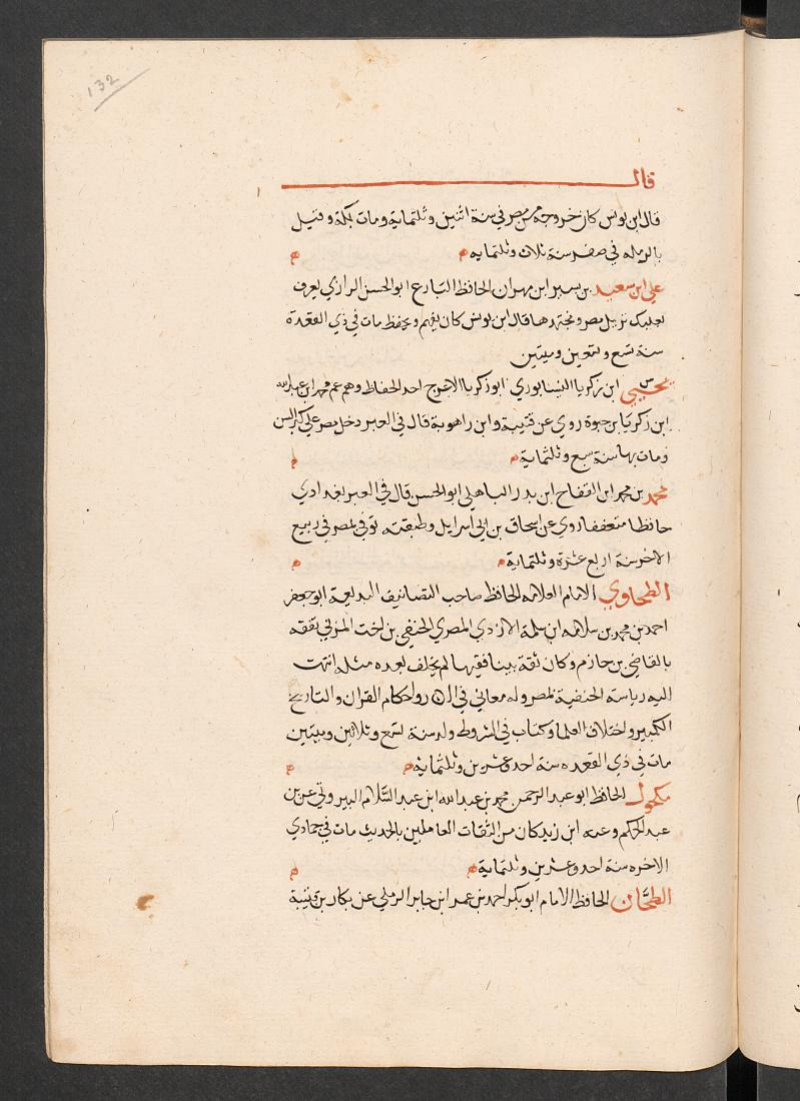 132
قال
قال ابن يونس كان خروجه من مصر في سنة اثنين وثلثماية ومات بمكة وقيل
بالرمله في صفر سنة ثلاث وثلثمايه م م
علي ابن سعيد بن بسير ابن مهران الحافظ البارع ابو الحسن الرازي يعرف
بعليك نزيل مصر ومحدثها قال ابن يونس كان يفهم ويحفظ مات في ذي القعدة
سنة تسع وتسعين وميتين
يحيى ابن زكريا النيسابوري ابو زكريا الاعرج احد الحفاظ وهو عم محمد ابن عبدالله
ابن زكريا بن حيوة روي عن قتيبة وابن راهوية قال في العبر دخل مصر علي كبر السن
ومات بها سنة سبع وثلثماية م م
محمد بن محمد ابن النفاح ابن بدر الباهلي ابو الحسن قال في العبر بغدادي
حافظا متعففا روي عن اسحاق بن ابي اسرايل وطبقته توفي بمصر في ربيع
الاخر سنة اربع عشرة وثلثماية م م
الطحاوي الامام العلامه الحافظ صاحب التصانيف البديعة ابو جعفر
احمد بن محمد بن سلامه ابن سلمة الازدي المصري الحنفي بن اخت المزني تفقه
بالقاضي بن حازم وكان ثقة بينا فقيها لم يخلف بعده مثله انتهت
اليه رياسة الحنفية بمصر وله معاني في واحكام القران والتاريخ
الكبير واختلاف العلما وكتاب في الشروط ولد سنة تسع وثلاثين وميتين
مات في ذي القعده سنة احد وعشرين وثلثماية م م
مكحول الحافظ ابو عبد الرحمن محمد بن عبد الله ابن عبد السلام البيروتي عن بن
عبد الحكم وعنه ابن زيد كان من الثقات العاملين بالحديث مات في جمادي
الاخره سنة احد وعشرين وثلثماية م م
الطحان الحافظ الامام ابو بكر احمد بن عمر ابن جابر الرملي عن بكار بن قتيبة